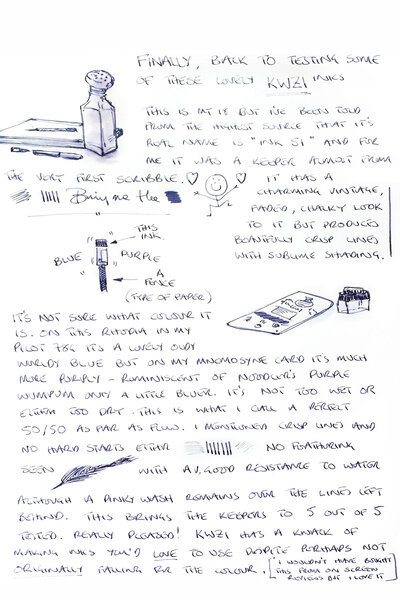 FINALLY, BACK TO TESTING SOME
OF THESE LOVELY KWZI INKS
THIS IS MY 18 BUT I'VE BEEN TOLD
FROM THE HIGHEST SOURCE THAT IT'S
REAL NAME IS "INK 51" AND FOR
ME IT WAS A KEEPER ALMOST FROM
THE VERY FIRST SCRIBBLE.
IT HAS A
CHARMING VINTAGE,
FADED, CHALKY LOOK
TO IT BUT PRODUCES
BEAUTIFULLY CRISP LINES
WITH SUBLIME SHADING.
Bring me the
THIS
INK
BLUE PURPLE
A
FENCE
(TYPE OF PAPER)
IT'S NOT SURE WHAT COLOUR IT
IS. ON THIS RHODIA IN MY
PILOT 78G IT'S A LOVELY OLDY
WORLDY BLUE BUT ON MY MNEMOSYNE CARD IT'S MUCH
MORE PURPLY - REMINISCENT OF NOODLER'S PURPLE
WUMPUM ONLY A LITTLE BLUER. IT'S NOT TOO WET OR
EITHER TOO DRY. THIS IS WHAT I CALL A PERFECT
50/50 AS FAR AS FLOW. I MENTIONED CRISP LINES AND
NO HARD STARTS EITHER NO FEATHERING
SEEN WITH A GOOD RESISTANCE TO WATER
ALTHOUGH A PINKY WASH REMAINS OVER THE LINES LEFT
BEHIND. THIS BRINGS THE KEEPERS TO 5 OUT OF 5
TESTED. REALLY PLEASED! KWZI HAS A KNACK OF
MAKING INKS YOU'D LOVE TO USE DESPITE PERHAPS NOT
ORIGINALLY FALLING FOR THE COLOUR. [I WOULDN'T HAVE BOUGHT
THIS FROM ON SCREEN
REVIEWS BUT I LOVE IT]